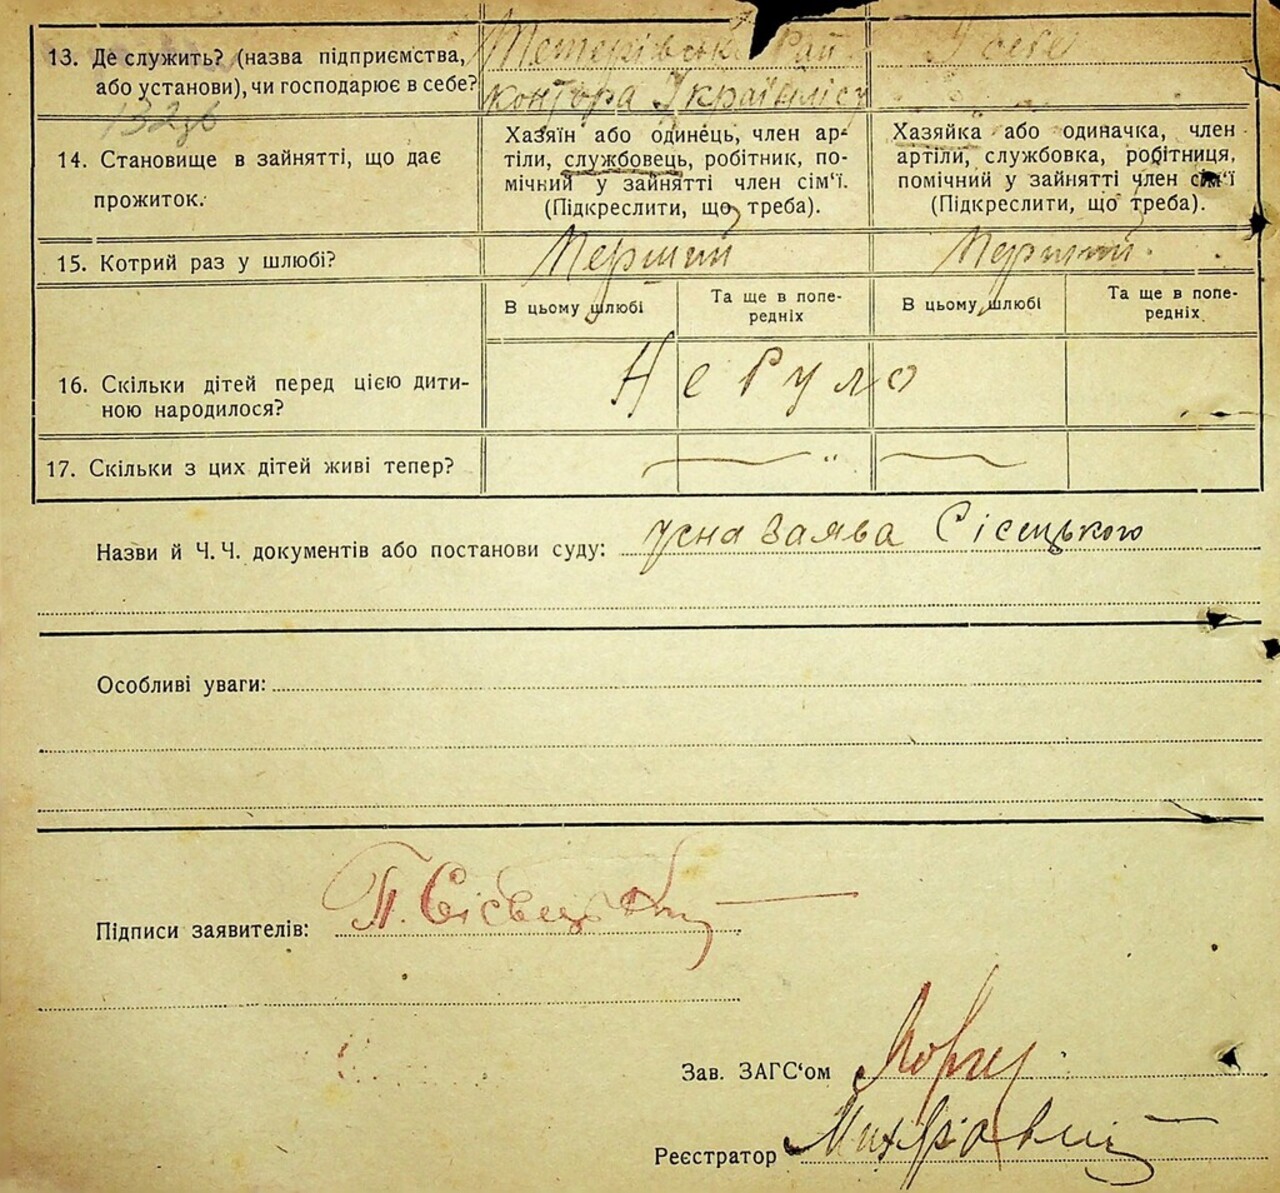 13. Де служить? (назва підприємства, або установи), чи господарює в себе?
Тетерівська Рай.
контора Українлісу
У себе
14. Становище в зайнятті, що дає прожиток.
Хазяїн або одинець, член ар-
тіли, службовець, робітник, по-
мічний у зайнятті член сім‘ї.
(Підкреслити, що треба).
Хазяйка або одиначка, член
артіли, службовка, робітниця,
помічний у зайнятті член сім‘ї
(Підкреслити, що треба).
15. Котрий раз у шлюбі?
Перший
Перший.
В цьому шлюбі
Та ще в попе-
редніх
В цьому шлюбі
Та ще в попе-
редніх
16. Скільки дітей перед цією дити-
ною народилося?
Не було
17. Скільки з цих дітей живі тепер?
— " —
Назви й Ч. Ч. документів або постанови суду: усна заява Сісецького
Особливі уваги:
Підписи заявителів: П.
Зав. ЗАГС‘ом
Реєстратор